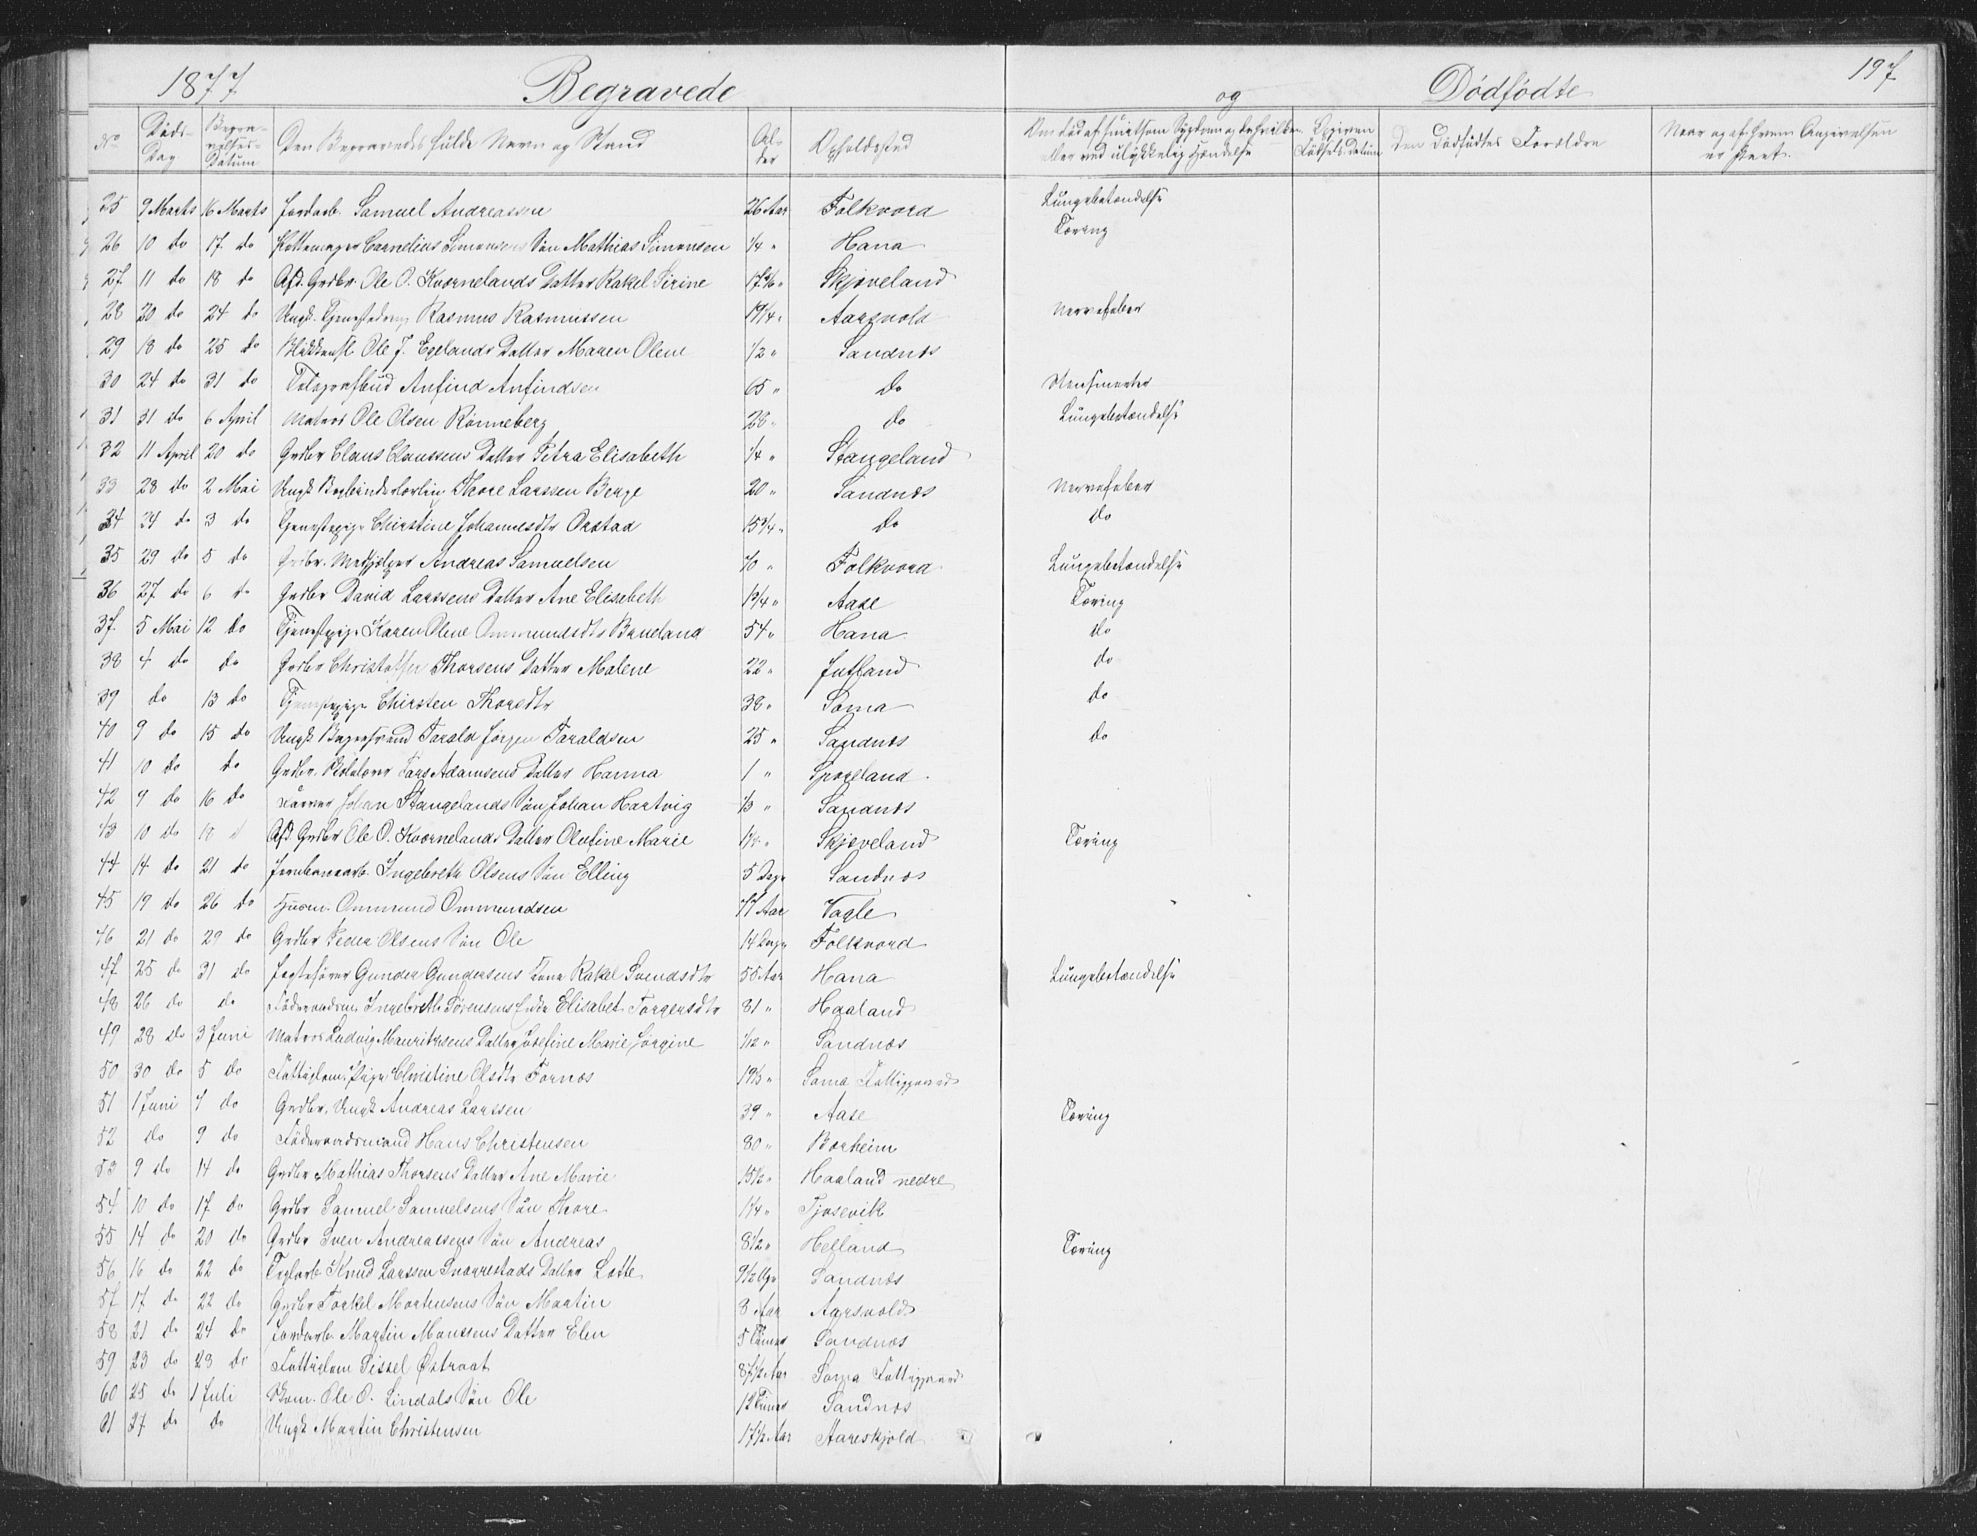 1877 Begravede og Dødfødte 197
No Døds-Dag Begravelses-Datum Den Begravedes fulde Navn og Stand Alder Opholdssted Om død af smitsom Sygdom eller ved ulykkelig Hændelse Fødsels Datum Den Dødfødtes Forældre Naar og af hvem Angivelsen er skeet.
25 9 Marts 16 Marts Jordarb. Samuel Andreassen 26 Aar Folkvord Lungebetændelse
26 10 do 17 do Pottemager Cornelius Simonsens Søn Mathias Simonsen 1/4 " Hana Tæring
27 11 do 18 do Afd. Grdbr. Ole O. Kværnelands Datter Rakel Sirine Skjæveland
28 20 do 24 do Ungk. Tjenestedreng Rasmus Rasmussen 19 1/4 " Aarsvold Nervefeber
29 18 do 25 do Ole J. Egelands Datter Maren Olene 1/2 " Sandnæs
30 24 do 31 do Telegrafbud Anfind Anfindsen 65 " do
31 31 do 6 April Matros Ole Olsen Rønneberg 28 " do Lungebetændelse
32 11 April 20 do Grdbr Claus Claussens Datter Petra Elisabeth 1/4 " Stangeland
33 28 do 2 Mai Ungk Thore Larssen Berge 20 " Sandnæs Nervefeber
34 24 do 3 do Tjenestepige Christine Johannesdtr Orstad 15 3/4 " do do
35 29 do 5 do Grdbr. Andreas Samuelsen Folkvord Lungebetændelse
36 27 do 6 do Grdbr David Larssens Datter Ane Elisabeth Aase Tæring
37 5 Mai 12 do Tjenestepige Karen Olene Ommundsdtr 54 " Hana do
38 4 do do Grdbr Christoffer Thorsens Datter Malene 22 " Jutland do
39 do 13 do Tjenestepige Chirsten Thorsdtr 38 " Soma do
40 9 do 15 do Ungk Tarald Jørgen Taraldsen 25 " Sandnæs do
41 10 do do Grdbr. Lars Adamsens Datter Hanna 1 " Sporeland
42 9 do 16 do Farver Johan Stangelands Søn Johan Hartvig 1/3 " Sandnæs
43 10 do 18 " Afd. Grdbr Ole O. Kværnelands Datter Olufine Marie Skjæveland Tæring
44 14 do 21 do Jernbanearb. Ingebreth Olsens Søn Elling 5 Dage Sandnæs
45 19 do 26 do Husm. Ommund Ommundsen 77 Aar Vagle
46 21 do 29 do Grdbr Peder Olsens Søn Ole 14 Dage Folkvord
47 25 do 31 do Jagtefører Gunder Gundersens Kone Rakel Svendsdtr 55 Aar Hana Lungebetændelse
48 26 do do Føderaadsm. Ingebreth Sørensens Enke Elisabet Torgersdtr 81 " Haaland
49 28 do 3 Juni Matros Ludvig Mauritzsens Datter Josefine Marie Jørgine 1/12 " Sandnæs
50 30 do 5 do Fattiglem. Pige Christine Olsdtr Fornæs Soma Fattiggaard
51 1 Juni 7 do Grdbr. Ungk Andreas Larssen 39 " Aase Tæring
52 do 9 do Føderaadsmand Hans Christensen 80 " Bærheim
53 9 do 14 do Grdbr Mathias Thorsens Datter Ane Marie 15 1/2 " Haaland nedre
54 10 do 17 do Grdbr Samuel Samuelsens Søn Thore 1 1/4 " Tjosevik
55 14 do 20 do Grdbr Sven Andreassens Søn Andreas 8 1/2 " Helland Tæring
56 16 do 22 do Teglarb. Knud Larssen Snorrestads Datter Lotte 9 1/2 Uge Sandnæs
57 17 do 22 do Grdbr Torkel Mortensens Søn Martin 3 Aar Aarsvold
58 21 do 24 do Jordarb. Martin Monssens Datter Elen 5 Timer Sandnæs
59 23 do 23 do Fattiglem Sissel Østraat 87 1/2 Aar Soma Fattiggaard
60 25 do 1 Juli Ole O. Lindals Søn Ole 12 Timer Sandnæs
61 27 do do Ungk Martin Christensen 17 1/2 Aar Aareskjold